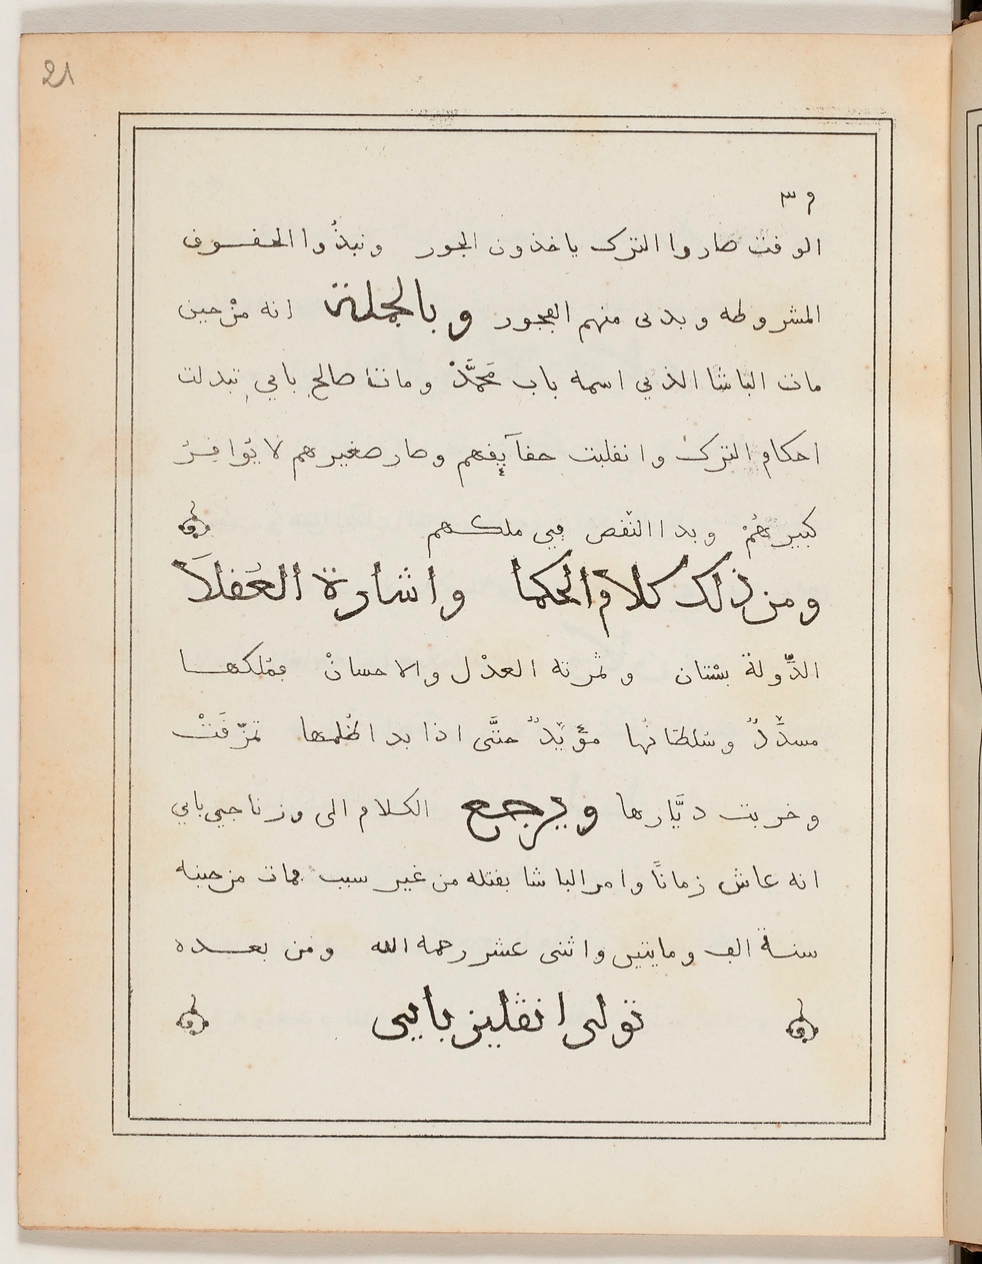 21
٣٩
الوقت صاروا الترك ياخذون الجور ونبذُوا الحقوق
المشروطه وبدى منهم الفجور وبالجملة انه منْ حين
مات الباشا الذي اسمه باب مَحمَّدْ ومات صالح باي تبدلت
احكام الترك وانقلبت حقآيقهم وصار صغيرهم لا يُوافقْ
كبيرهُمْ وبدا النّقص في ملكهم
ومن ذلك كلام الحكما واشارة العُقلاَ
الدَّولة بسْتان وثمرته العدْل والاحسانْ فملكها
مسدَّدٌ وسُلطانُها مؤيَّدٌ حتَّى اذا بدا ظُلمها تمزّقَتْ
وخربت ديَّارها ويرجع الكلام الى وزناجي باي
انه عاش زمانًا وامر الباشا بقتله من غير سبب فمات من حينه
سنة الف ومايتين واثنى عشر رحمه الله ومن بعده
تولى انڤليز بايي